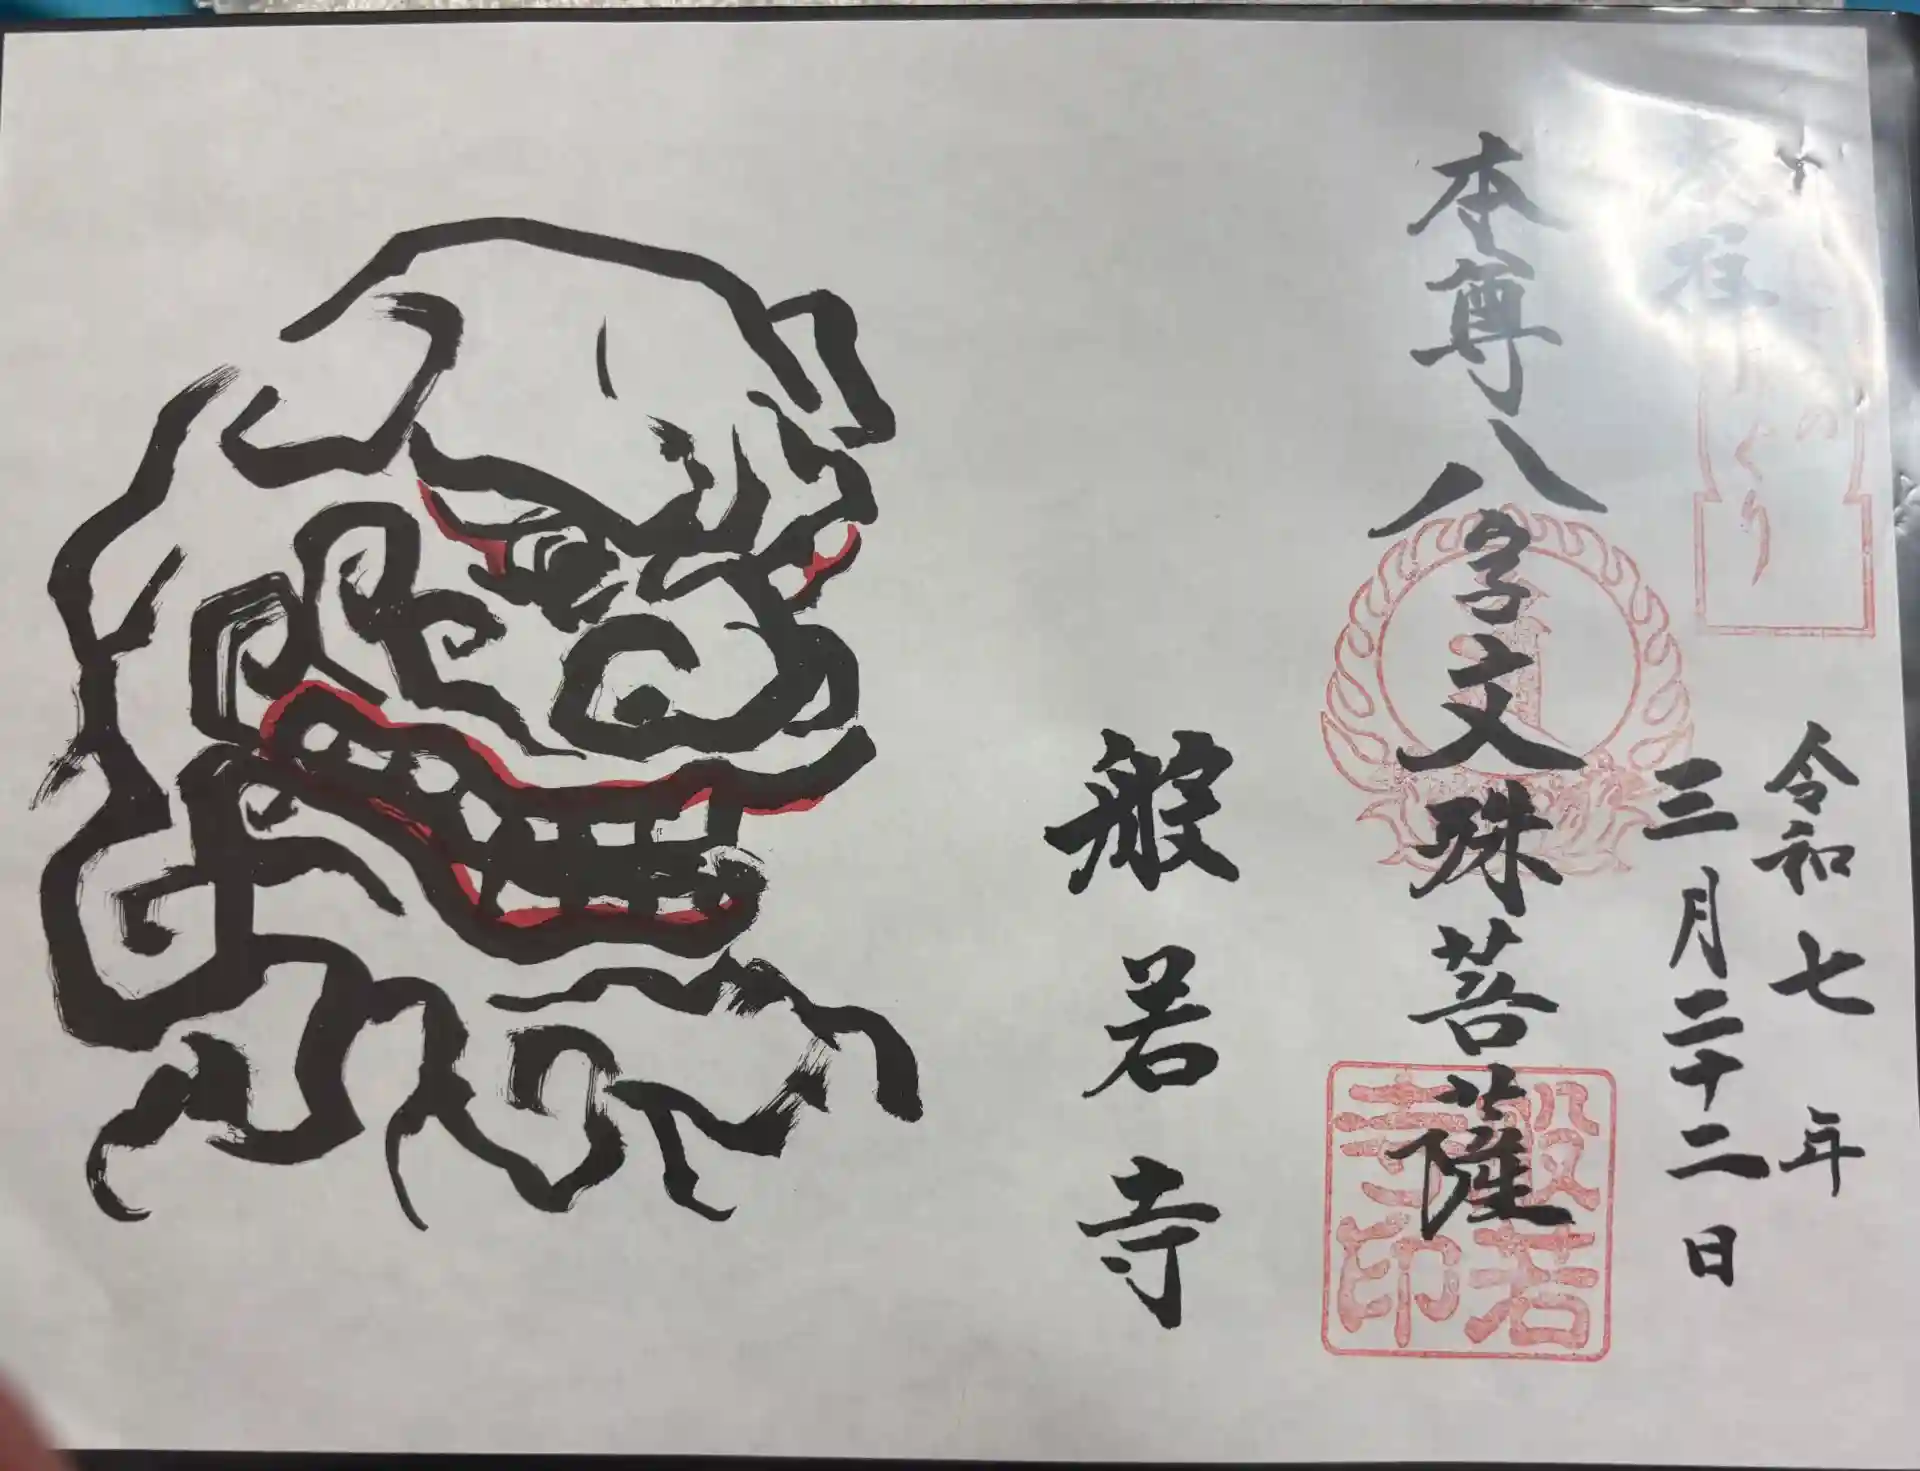 奉拝
令和七年
三月二十二日
本尊八字文殊菩薩
般若寺
般若寺印